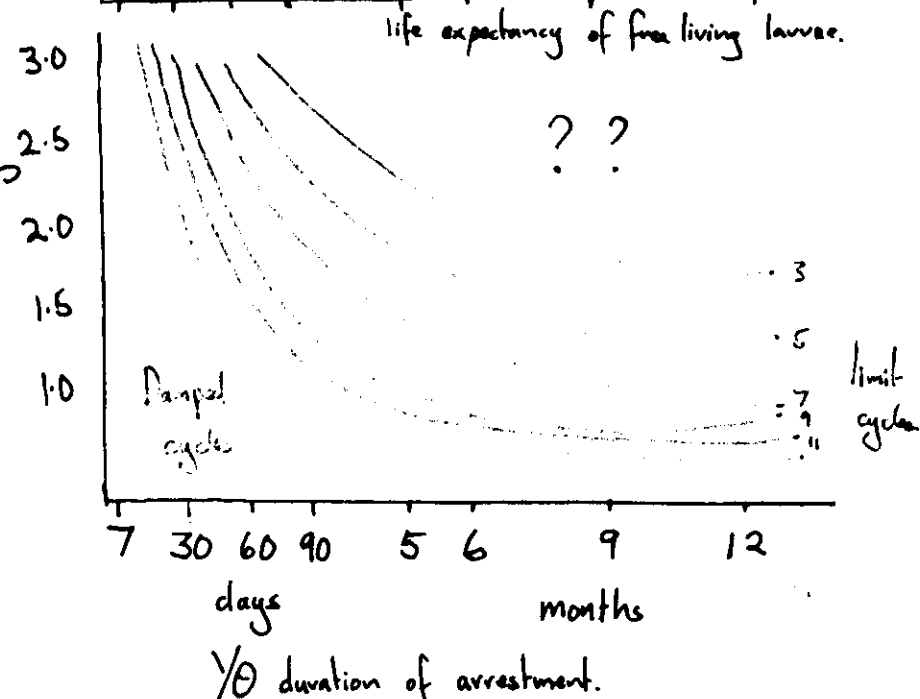 life expectancy of free living larvae.
3.0
2.5
2.0
1.5
1.0
? ?
Damped
cycles
3
5
7
9
11
limit
cycles
7 30 60 90 5 6 9 12
days months
1/θ duration of arrestment.